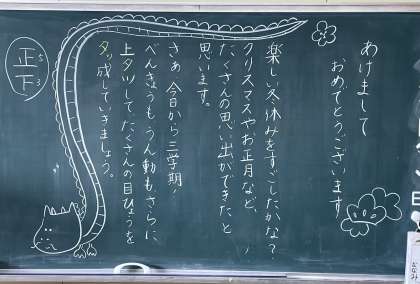 あけまして
おめでとうございます
楽しい冬休みをすごしたかな？
クリスマスやお正月など、
たくさんの思い出ができたと
思います。
さあ、今日から三学期！
べんきょうも、うん動も、さらに、
上タツして、たくさんの目ひょうを
タッ成していきましょう。
正
下